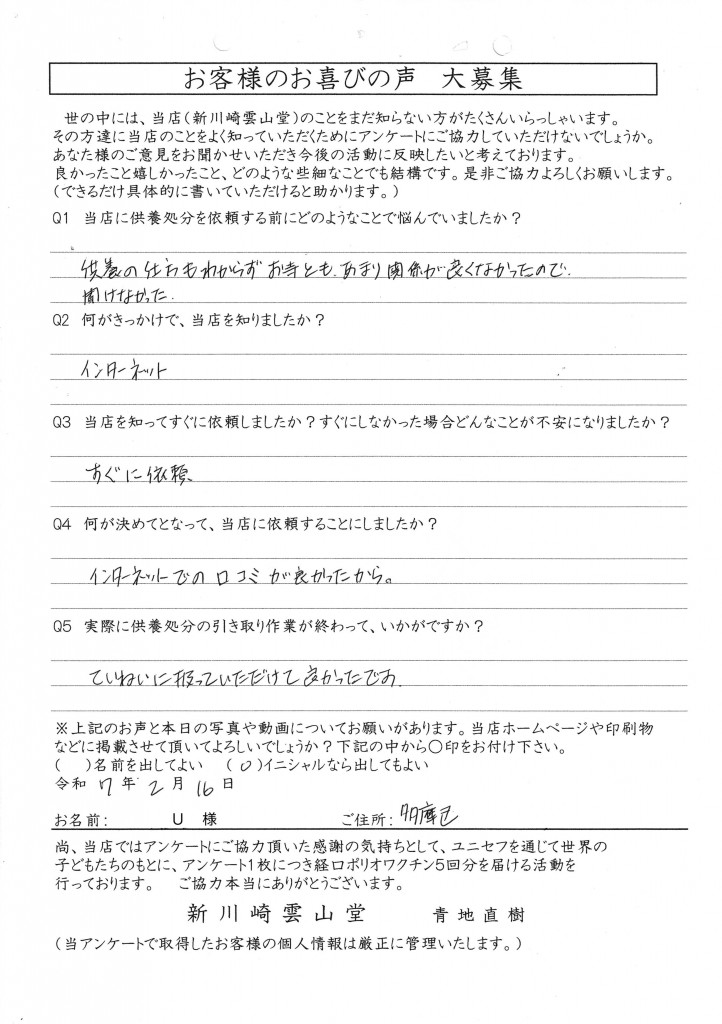 お客様のお喜びの声 大募集
世の中には、当店(新川崎雲山堂)のことをまだ知らない方がたくさんいらっしゃいます。
その方達に当店のことをよく知っていただくためにアンケートにご協力していただけないでしょうか。
あなた様のご意見をお聞かせいただき今後の活動に反映したいと考えております。
良かったこと嬉しかったこと、どのような些細なことでも結構です。是非ご協力よろしくお願いします。
(できるだけ具体的に書いていただけると助かります。)
Q1 当店に供養処分を依頼する前にどのようなことで悩んでいましたか?
供養の仕方もわからずお寺とも、あまり関係が良くなかったので、
聞けなかった.
Q2 何がきっかけで、当店を知りましたか?
インターネット
Q3 当店を知ってすぐに依頼しましたか?すぐにしなかった場合どんなことが不安になりましたか?
すぐに依頼、
Q4 何が決めてとなって、当店に依頼することにしましたか?
インターネットでの口コミが良かったから。
Q5 実際に供養処分の引き取り作業が終わって、いかがですか?
ていねいに扱っていただけて良かったです.
※上記のお声と本日の写真や動画についてお願いがあります。当店ホームページや印刷物
などに掲載させて頂いてよろしいでしょうか?下記の中から○印をお付け下さい。
( )名前を出してよい (○)イニシャルなら出してもよい
令和 7 年 2 月 16 日
お名前: U 様 ご住所: 多摩区
尚、当店ではアンケートにご協力頂いた感謝の気持ちとして、ユニセフを通じて世界の
子どもたちのもとに、アンケート1枚につき経口ポリオワクチン5回分を届ける活動を
行っております。 ご協力本当にありがとうございます。
新川崎雲山堂 青地直樹
(当アンケートで取得したお客様の個人情報は厳正に管理いたします。)